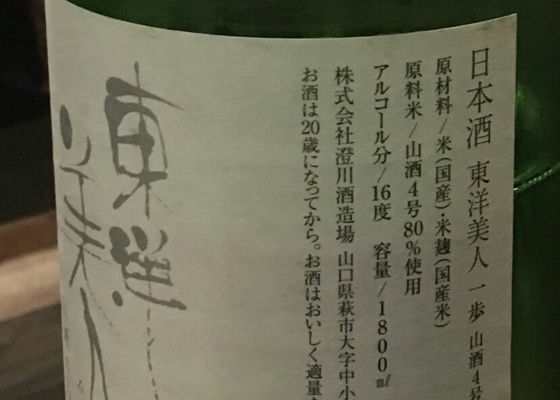 日本酒 東洋美人 一歩 山酒4号
原材料/米(国産)・米麹(国産米)
原料米/山酒4号80%使用
アルコール分/16度 容量/1800㎖
株式会社澄川酒造場 山口県萩市大字中小
お酒は20歳になってから。お酒はおいしく適量
東洋
美人